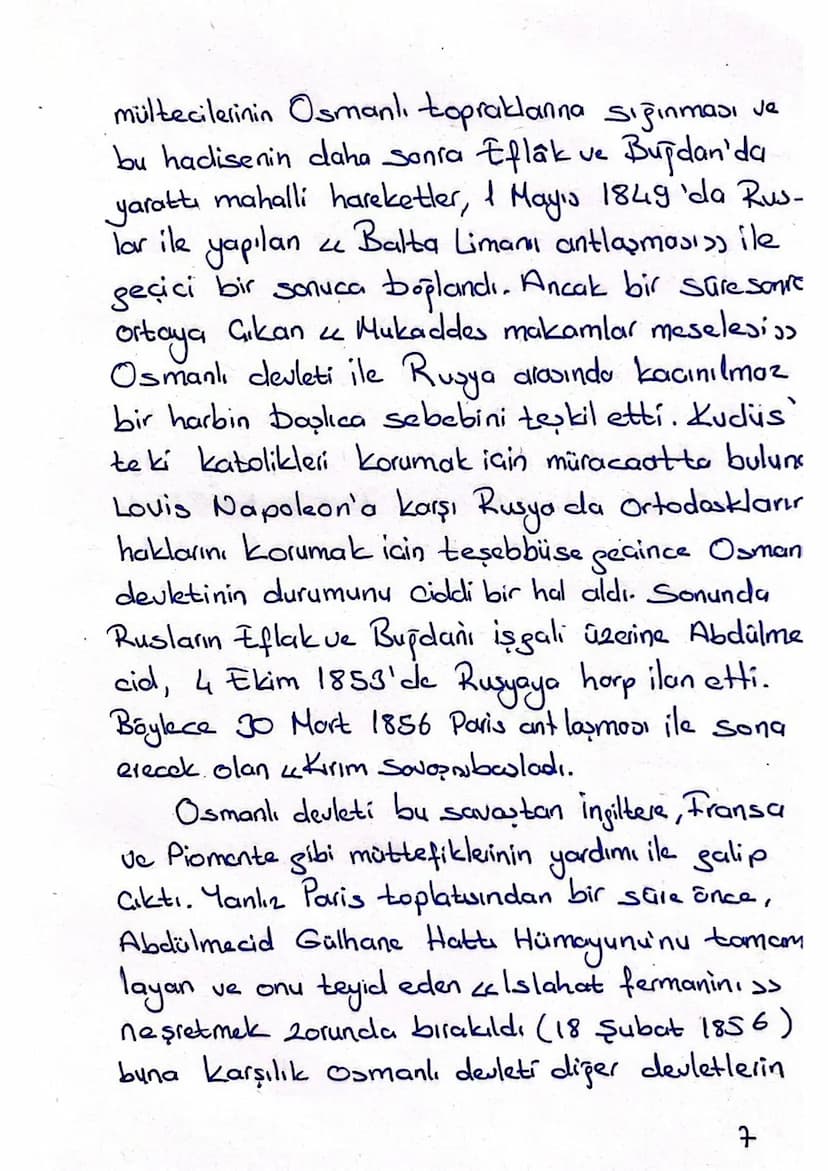 mültecilerinin Osmanlı topraklarına sığınması ve
bu hadisenin daha sonra Eflâk ve Buğdan'da
yarattı mahalli hareketler, 1 Mayıs 1849'da Rus-
lar ile yapılan « Balta Limanı antlaşması» ile
geçici bir sonuca bağlandı. Ancak bir süre sonra
ortaya Çıkan « Mukaddes makamlar meselesi»
Osmanlı devleti ile Rusya arasında kacınılmaz
bir harbin başlıca sebebini teşkil etti. Kudüs'
teki katolikleri korumak için müracaatta buluna
Louis Napoleon'a karşı Rusya da Ortodoskların
haklarını korumak icin teşebbüse geçince Osman
devletinin durumunu ciddi bir hal aldı. Sonunda
Rusların Eflak ve Buğdanı işgali üzerine Abdülme
cid, 4 Ekim 1853'de Rusyaya harp ilan etti.
Böylece 30 Mart 1856 Paris antlaşması ile sona
erecek olan «Kırım Savaşı başladı.
Osmanlı devleti bu savaştan İngiltere, Fransa
ve Piomente gibi müttefiklerinin yardımı ile galip
Çıktı. Yanlız Paris toplatısından bir süre önce,
Abdülmecid Gülhane Hattı Hümayunu'nu tamam
layan ve onu teyid eden «Islahat fermanını »
neşretmek zorunda bırakıldı (18 Şubat 1856)
buna karşılık Osmanlı devleti diğer devletlerin
7